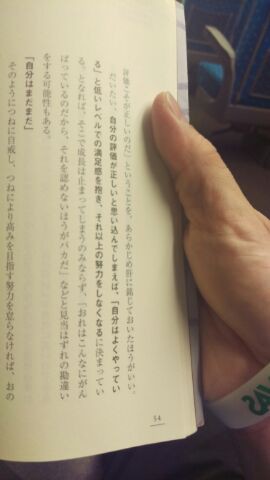 評価こそが正しいのだ」ということを、あらかじめ肝に銘じておいたほうがいい。
だいたい、自分の評価が正しいと思い込んでしまえば、「自分はよくやってい
る」と低いレベルでの満足感を抱き、それ以上の努力をしなくなるに決まってい
る。となれば、そこで成長は止まってしまうのみならず、「おれはこんなにがん
ばっているのだから、それを認めないほうがバカだ」などと見当はずれの勘違い
をする可能性もある。
「自分はまだまだ」
そのようにつねに自戒し、つねにより高みを目指す努力を怠らなければ、おの
54